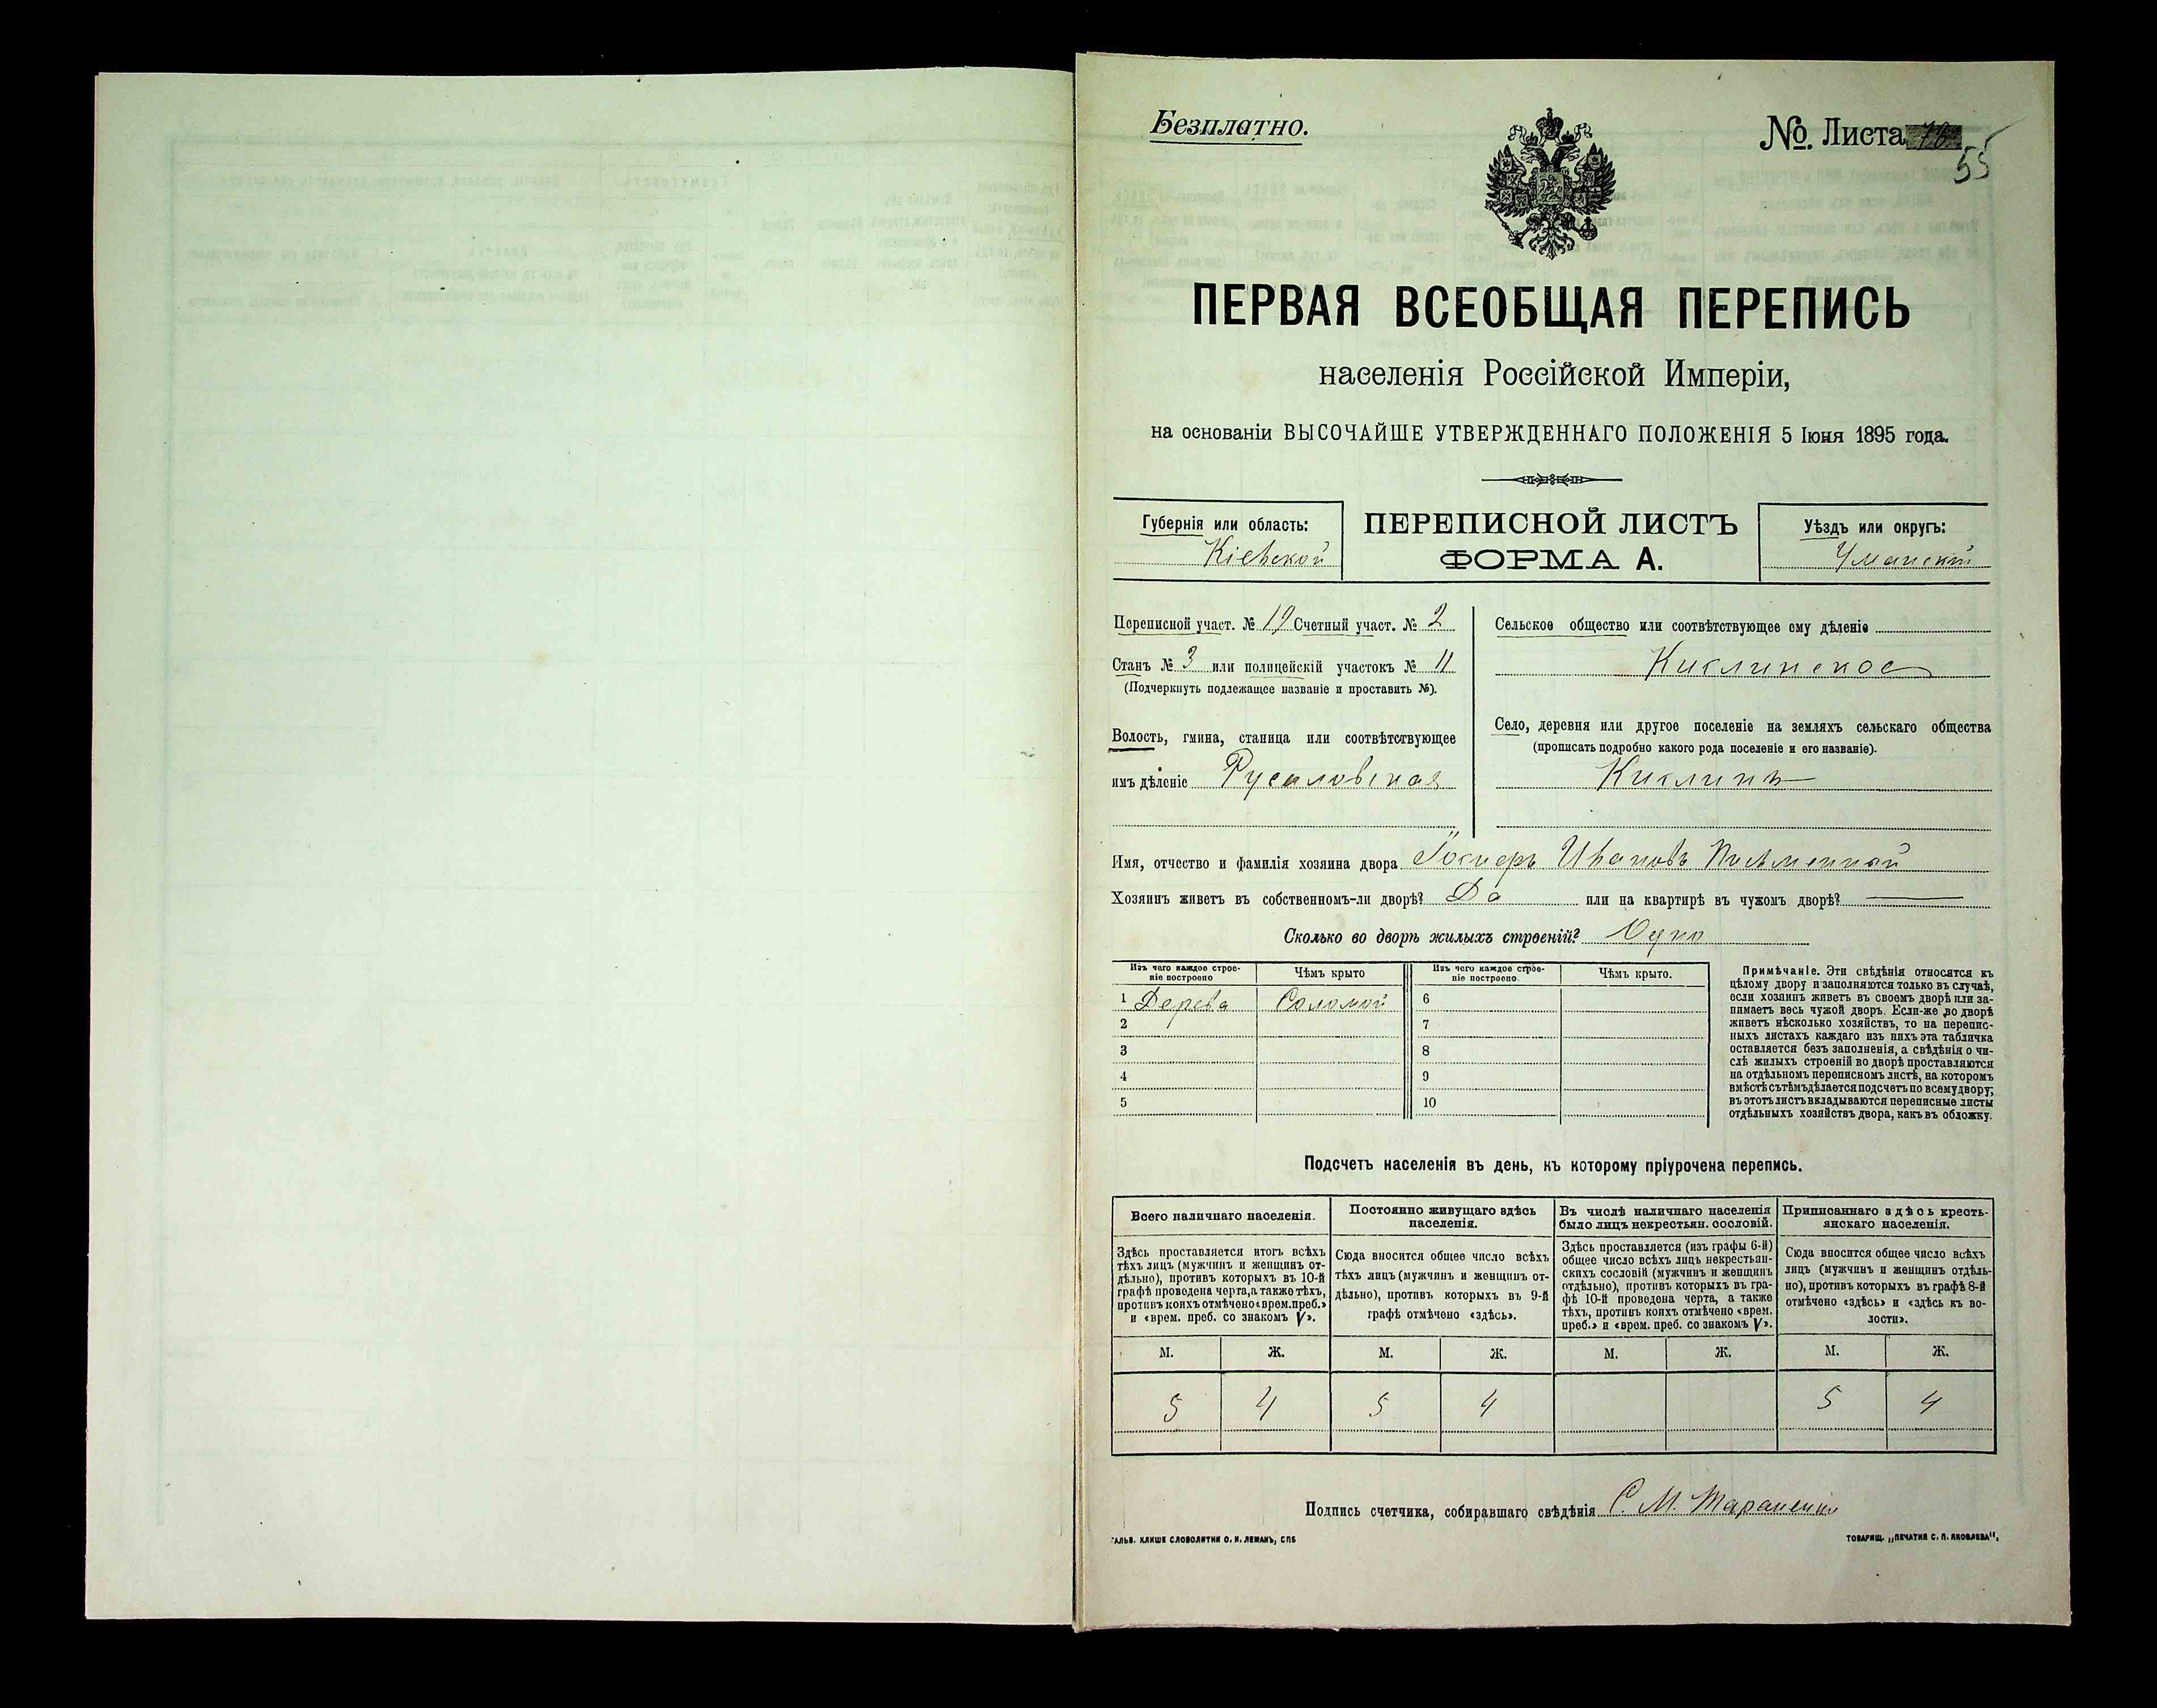 Безплатно.
№. Листа 76
55
ПЕРВАЯ ВСЕОБЩАЯ ПЕРЕПИСЬ
населенія Россійской Имперіи,
на основаніи ВЫСОЧАЙШЕ УТВЕРЖДЕННАГО ПОЛОЖЕНІЯ 5 Іюня 1895 года.
Губернія или область:
Кіевской
ПЕРЕПИСНОЙ ЛИСТЪ
ФОРМА А.
Уѣздъ или округъ:
Уманскій
Переписной участ. № 19 Счетный участ. № 2
Станъ № 3 или полицейскій участокъ № 11
(Подчеркнуть подлежащее названіе и проставить №).
Волость, гмина, станица или соотвѣтствующее
имъ дѣленіе Русаловская
Сельское общество или соотвѣтствующее ему дѣленіе
Киклинское
Село, деревня или другое поселеніе на земляхъ сельскаго общества
(прописать подробно какого рода поселеніе и его названіе).
Киклинъ
Имя, отчество и фамилія хозяина двора Іосиеръ Ивановъ Письменный
Хозяинъ живетъ въ собственномъ-ли дворѣ? Да или на квартирѣ въ чужомъ дворѣ?
Сколько во дворѣ жилыхъ строеній? Одно
Изъ чего каждое строе-
ніе построено
Чѣмъ крыто
Изъ чего каждое строе-
ніе построено.
Чѣмъ крыто.
1 Дерева Соломой 6
2 7
3 8
4 9
5 10
Примѣчаніе. Эти свѣдѣнія относятся къ
цѣлому двору и заполняются только въ случаѣ,
если хозяинъ живетъ въ своемъ дворѣ или за-
нимаетъ весь чужой дворъ. Если-же во дворѣ
живетъ нѣсколько хозяйствъ, то на перепис-
ныхъ листахъ каждаго изъ нихъ эта табличка
оставляется безъ заполненія, а свѣдѣнія о чи-
слѣ жилыхъ строеній во дворѣ проставляются
на отдѣльномъ переписномъ листѣ, на которомъ
вмѣстѣ съ тѣмъ дѣлается подсчетъ по всему двору;
въ этотъ листъ вкладываются переписные листы
отдѣльныхъ хозяйствъ двора, какъ въ обложку.
Подсчетъ населенія въ день, къ которому пріурочена перепись.
Всего наличнаго населенія.
Здѣсь проставляется итогъ всѣхъ
тѣхъ лицъ (мужчинъ и женщинъ от-
дѣльно), противъ которыхъ въ 10-й
графѣ проведена черта, а также тѣхъ,
противъ коихъ отмѣчено «врем. преб.»
и «врем. преб. со знакомъ V».
Постоянно живущаго здѣсь
населенія.
Сюда вносится общее число всѣхъ
тѣхъ лицъ (мужчинъ и женщинъ от-
дѣльно), противъ которыхъ въ 9-й
графѣ отмѣчено «здѣсь».
Въ числѣ наличнаго населенія
было лицъ некрестьян. сословій.
Здѣсь проставляется (изъ графы 6-й)
общее число всѣхъ лицъ некрестьян-
скихъ сословій (мужчинъ и женщинъ
отдѣльно), противъ которыхъ въ гра-
фѣ 10-й проведена черта, а также
тѣхъ, противъ коихъ отмѣчено «врем.
преб.» и «врем. преб. со знакомъ V».
Приписаннаго здѣсь кресть-
янскаго населенія.
Сюда вносится общее число всѣхъ
лицъ (мужчинъ и женщинъ отдѣль-
но), противъ которыхъ въ графѣ 8-й
отмѣчено «здѣсь» и «здѣсь къ во-
лости».
М. Ж. М. Ж. М. Ж. М. Ж.
5 4 5 4 5 4
Подпись счетчика, собиравшаго свѣдѣнія С. М. Тараненко
ГАЛЬВ. КЛИШЕ СЛОВОЛИТНИ О. И. ЛЕМАНЪ, СПБ
ТОВАРИЩ. „ПЕЧАТНЯ С. П. ЯКОВЛЕВА“.